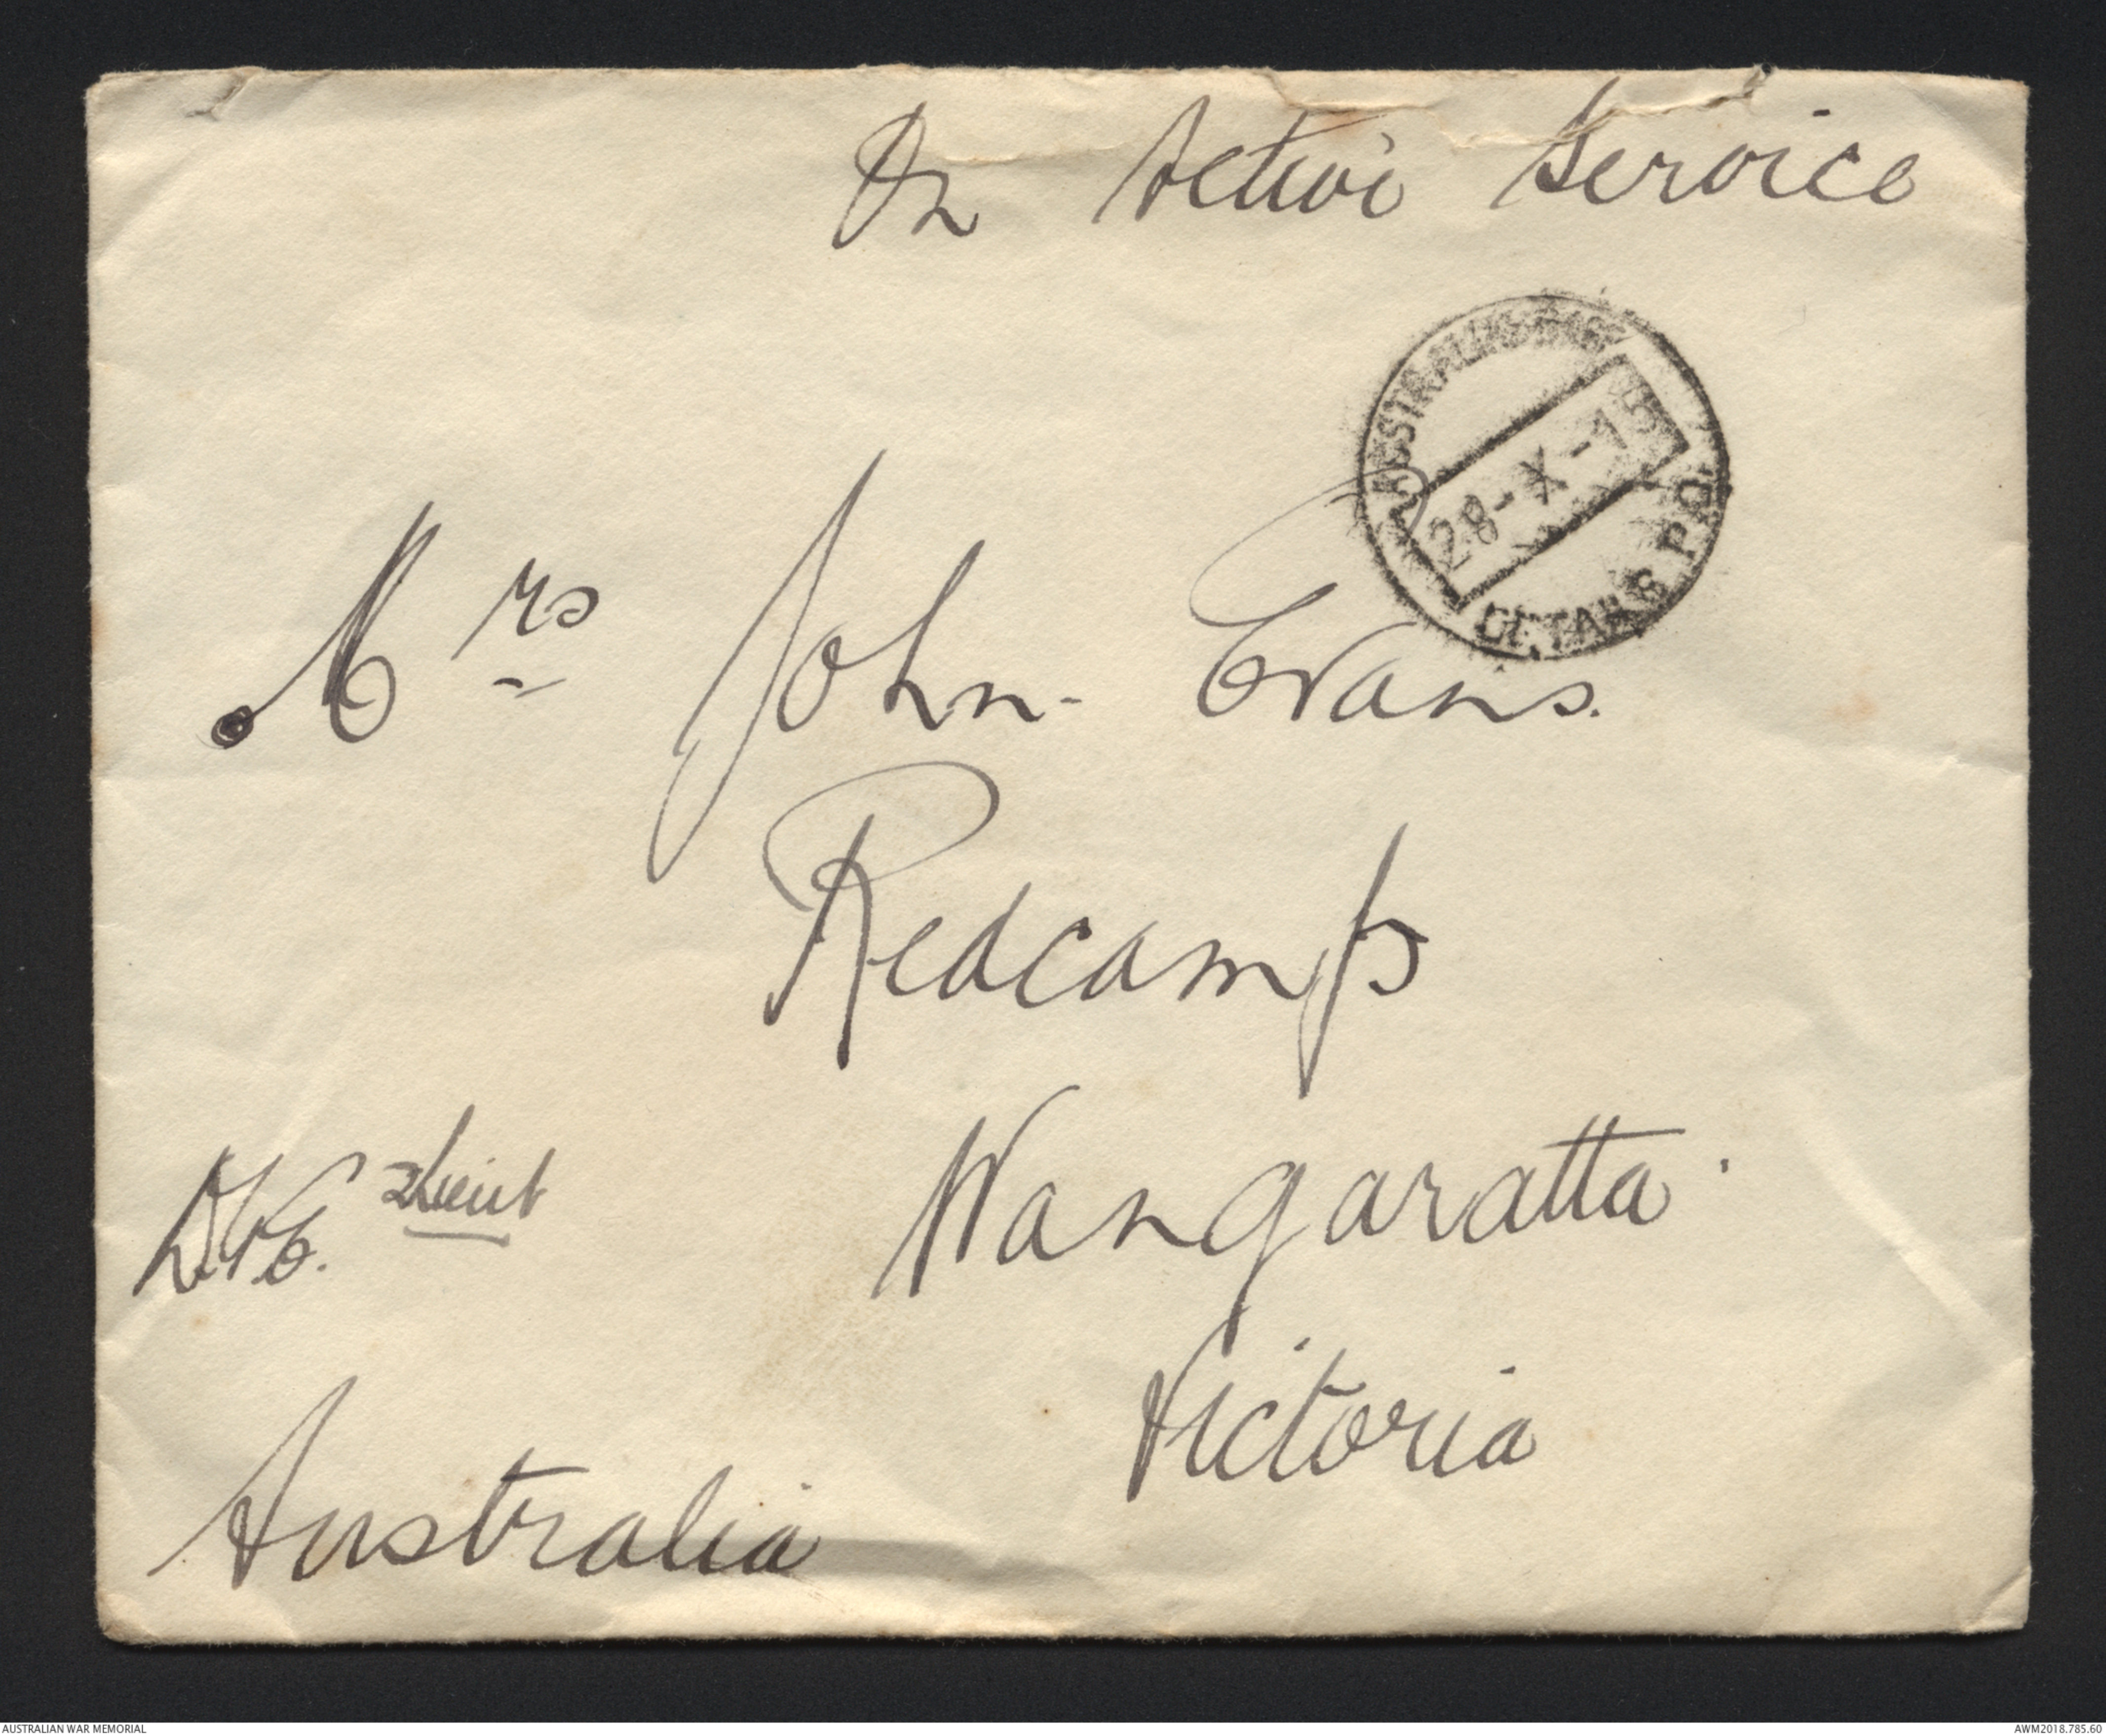 On Active Service
28-X-15
Mrs John Evans.
Redcamp
Wangaratta.
2Lieut
Victoria
Australia
AUSTRALIAN WAR MEMORIAL
AWM2018.785.60